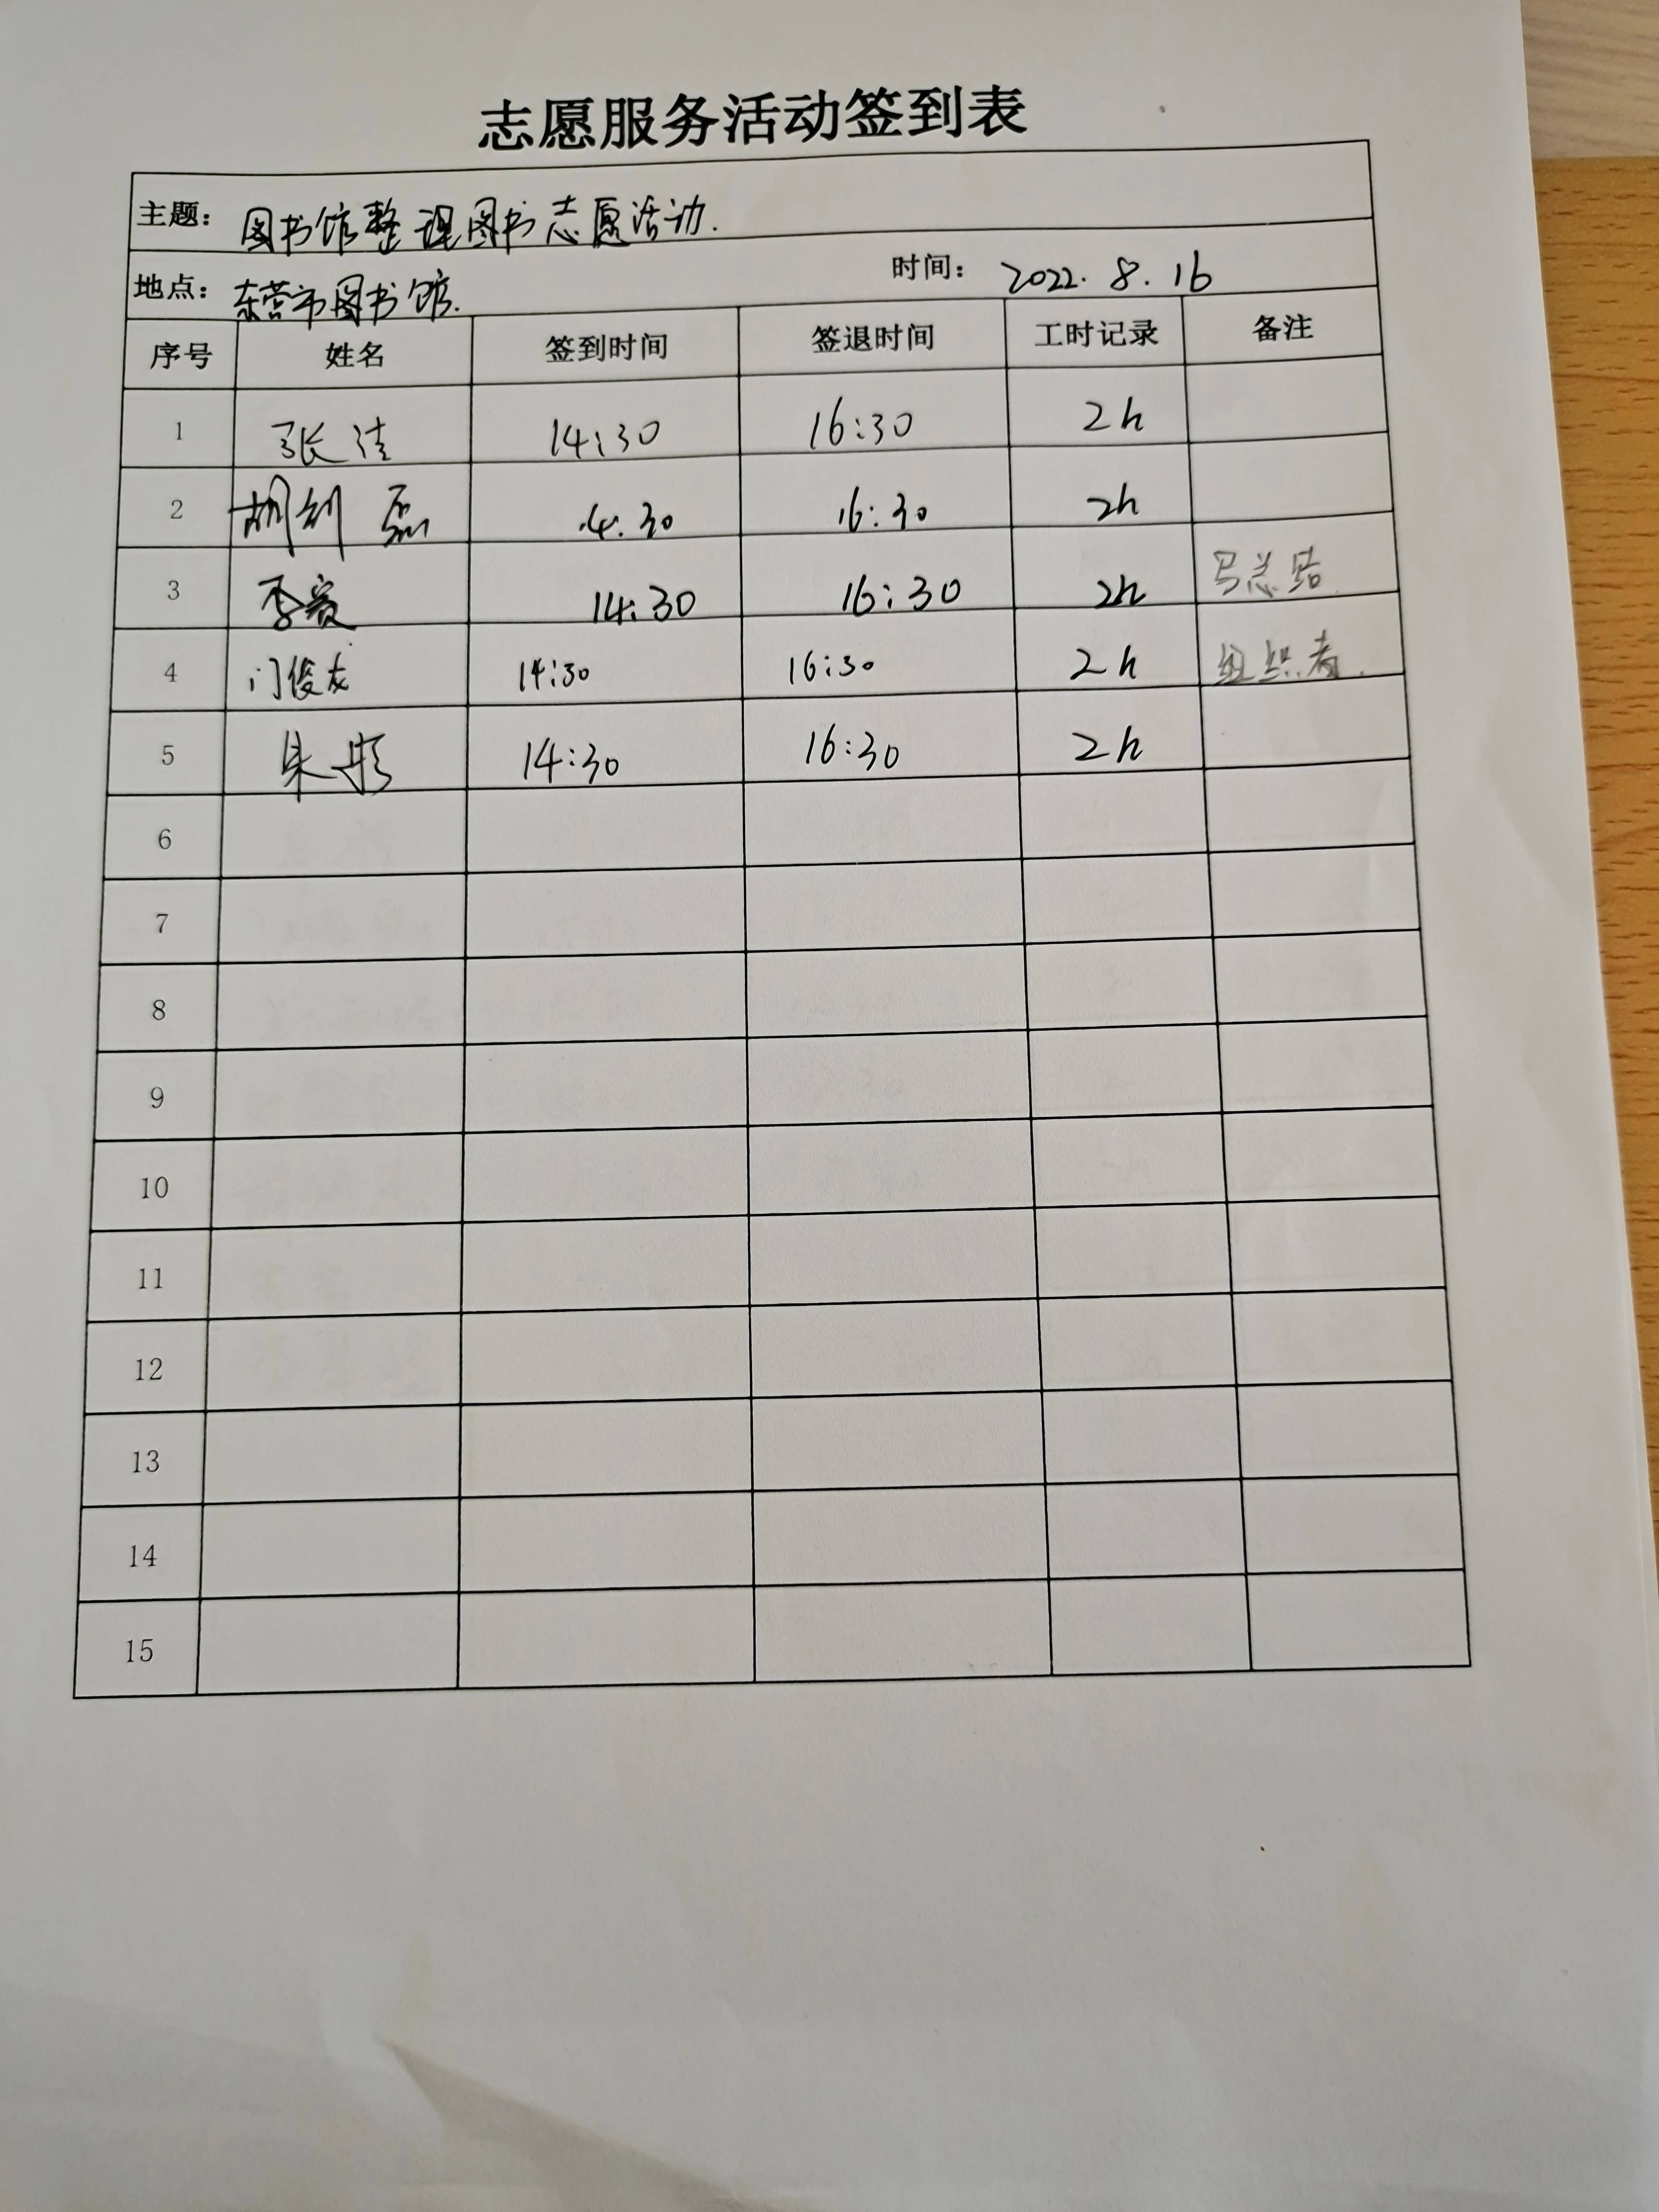 志愿服务活动签到表
主题: 图书馆整理图书志愿活动.
地点: 东营市图书馆. 时间: 2022.8.16
序号 姓名 签到时间 签退时间 工时记录 备注
1 张洁 14:30 16:30 2h
2 胡剑磊 14:30 16:30 2h
3 李 14:30 16:30 2h 写总结
4 门俊友 14:30 16:30 2h 组织者.
5 朱彤 14:30 16:30 2h
6
7
8
9
10
11
12
13
14
15